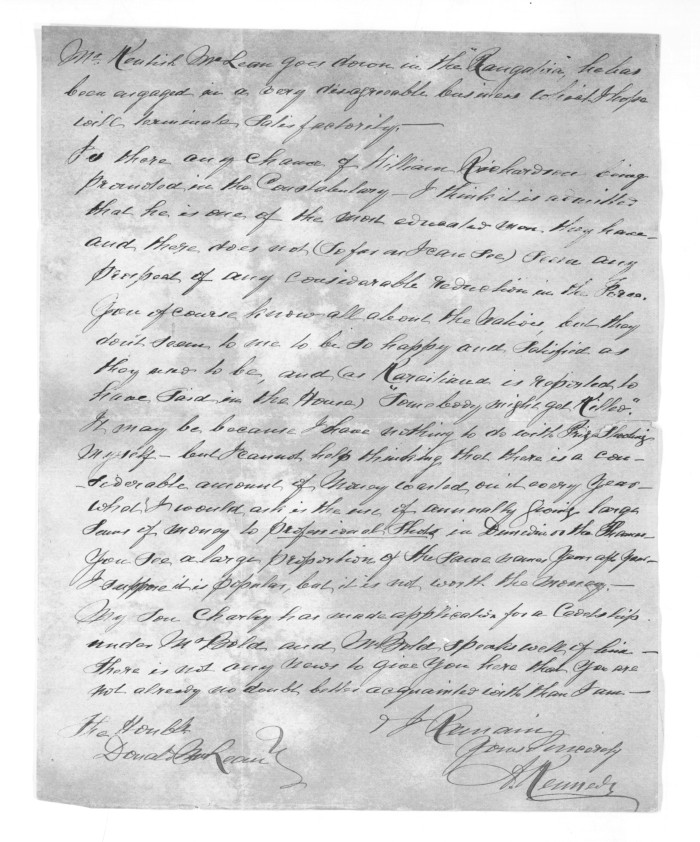 Mr. Kentish McLean goes down in the "Rangatira", he has
been engaged in a very disagreeable business which I hope
will terminate satisfactorily.—
Is there any chance of William Richardson being
promoted in the Constabulary — I think it is admitted
that he is one of the most educated men they have —
and there does not (so far as I can see) seem any
prospect of any considerable reduction in the Force.
You of course know all about the Natives, but they
don't seem to me to be so happy and satisfied as
they used to be, and (as Karaitiana is reported to
have said in the House) "Somebody might get Killed".
It may be because I have nothing to do with Prize Shooting
myself — but I cannot help thinking that there is a con-
-siderable amount of Money wasted on it every Year —
what I would ask is the use of annually giving large
sums of money to professional Shots in Dunedin or the Thames
You see a large proportion of the same names Year after Year —
I suppose it is popular, but it is not worth the money.—
My son Charley has made application for a Cadetship
under Mr Bold and Mr Bold speaks well of him —
There is not any news to give You here that You are
not already no doubt better acquainted with than I am —
The Honble
I Remain
Donald McLean
Yours sincerely
A. Kennedy